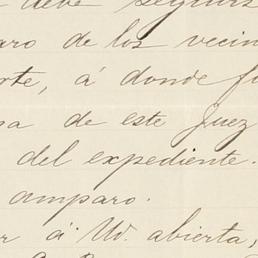 debe seguirs
aro de los vecin
rte, á donde fu
sa de este juez
del expediente.
amparo.
r á Ud. abierta,